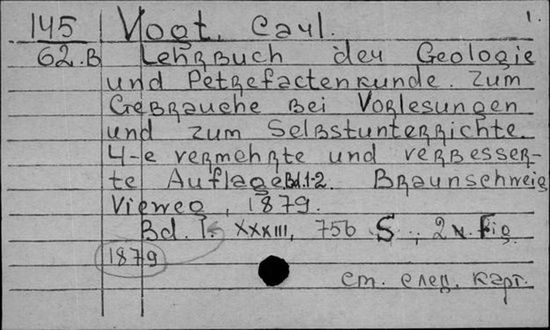 145 Vogt, Carl. 1.
62.B Lehrbuch der Geologie
und Petrefactenkunde. Zum
Gebrauche bei Vorlesungen
und zum Selbstunterrichte.
4-e vermehrte und verbesser-
te Auflage Bd. 1-2. Braunschweig
Vieweg, 1879.
Bd. 1. XXXIII, 756 S.,
1879
см. след. карт.